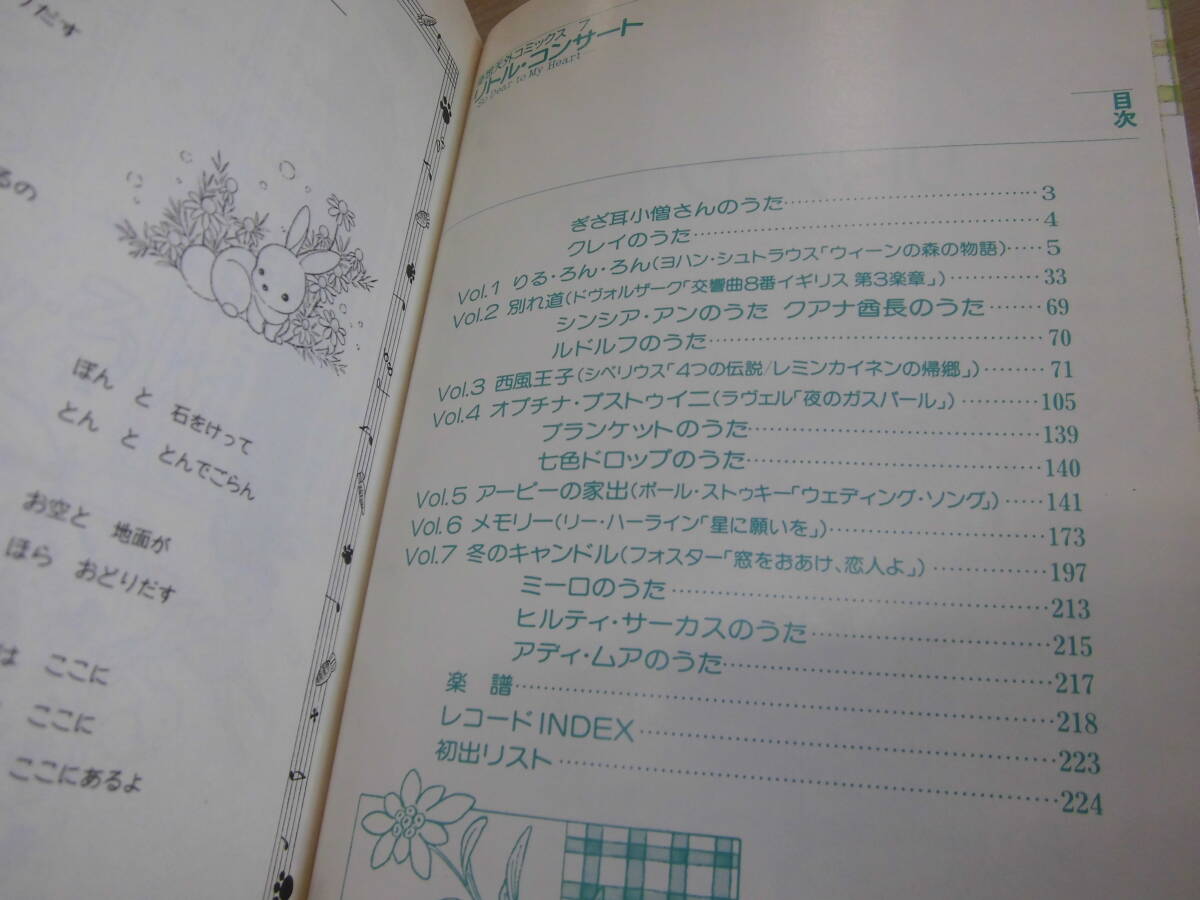 りだす
るの
ぽん と 石をけって
とん と とんでごらん
お空と 地面が
ほら おどりだす
は ここに
ここに
ここにあるよ
天外コミックス 7
リトル・コンサート
So Dear to My Heart
目次
ぎざ耳小僧さんのうた 3
クレイのうた 4
Vol.1 りる・ろん・ろん(ヨハン・シュトラウス「ウィーンの森の物語) 5
Vol.2 別れ道(ドヴォルザーク「交響曲8番イギリス 第3楽章」) 33
シンシア・アンのうた クアナ酋長のうた 69
ルドルフのうた 70
Vol.3 西風王子(シベリウス「4つの伝説/レミンカイネンの帰郷」) 71
Vol.4 オプチナ・プストゥイニ(ラヴェル「夜のガスパール」) 105
ブランケットのうた 139
七色ドロップのうた 140
Vol.5 アーピーの家出(ポール・ストゥキー「ウェディング・ソング」) 141
Vol.6 メモリー(リー・ハーライン「星に願いを」) 173
Vol.7 冬のキャンドル(フォスター「窓をおあけ、恋人よ」) 197
ミーロのうた 213
ヒルティ・サーカスのうた 215
アディ・ムアのうた 217
楽 譜 218
レコードINDEX 223
初出リスト 224